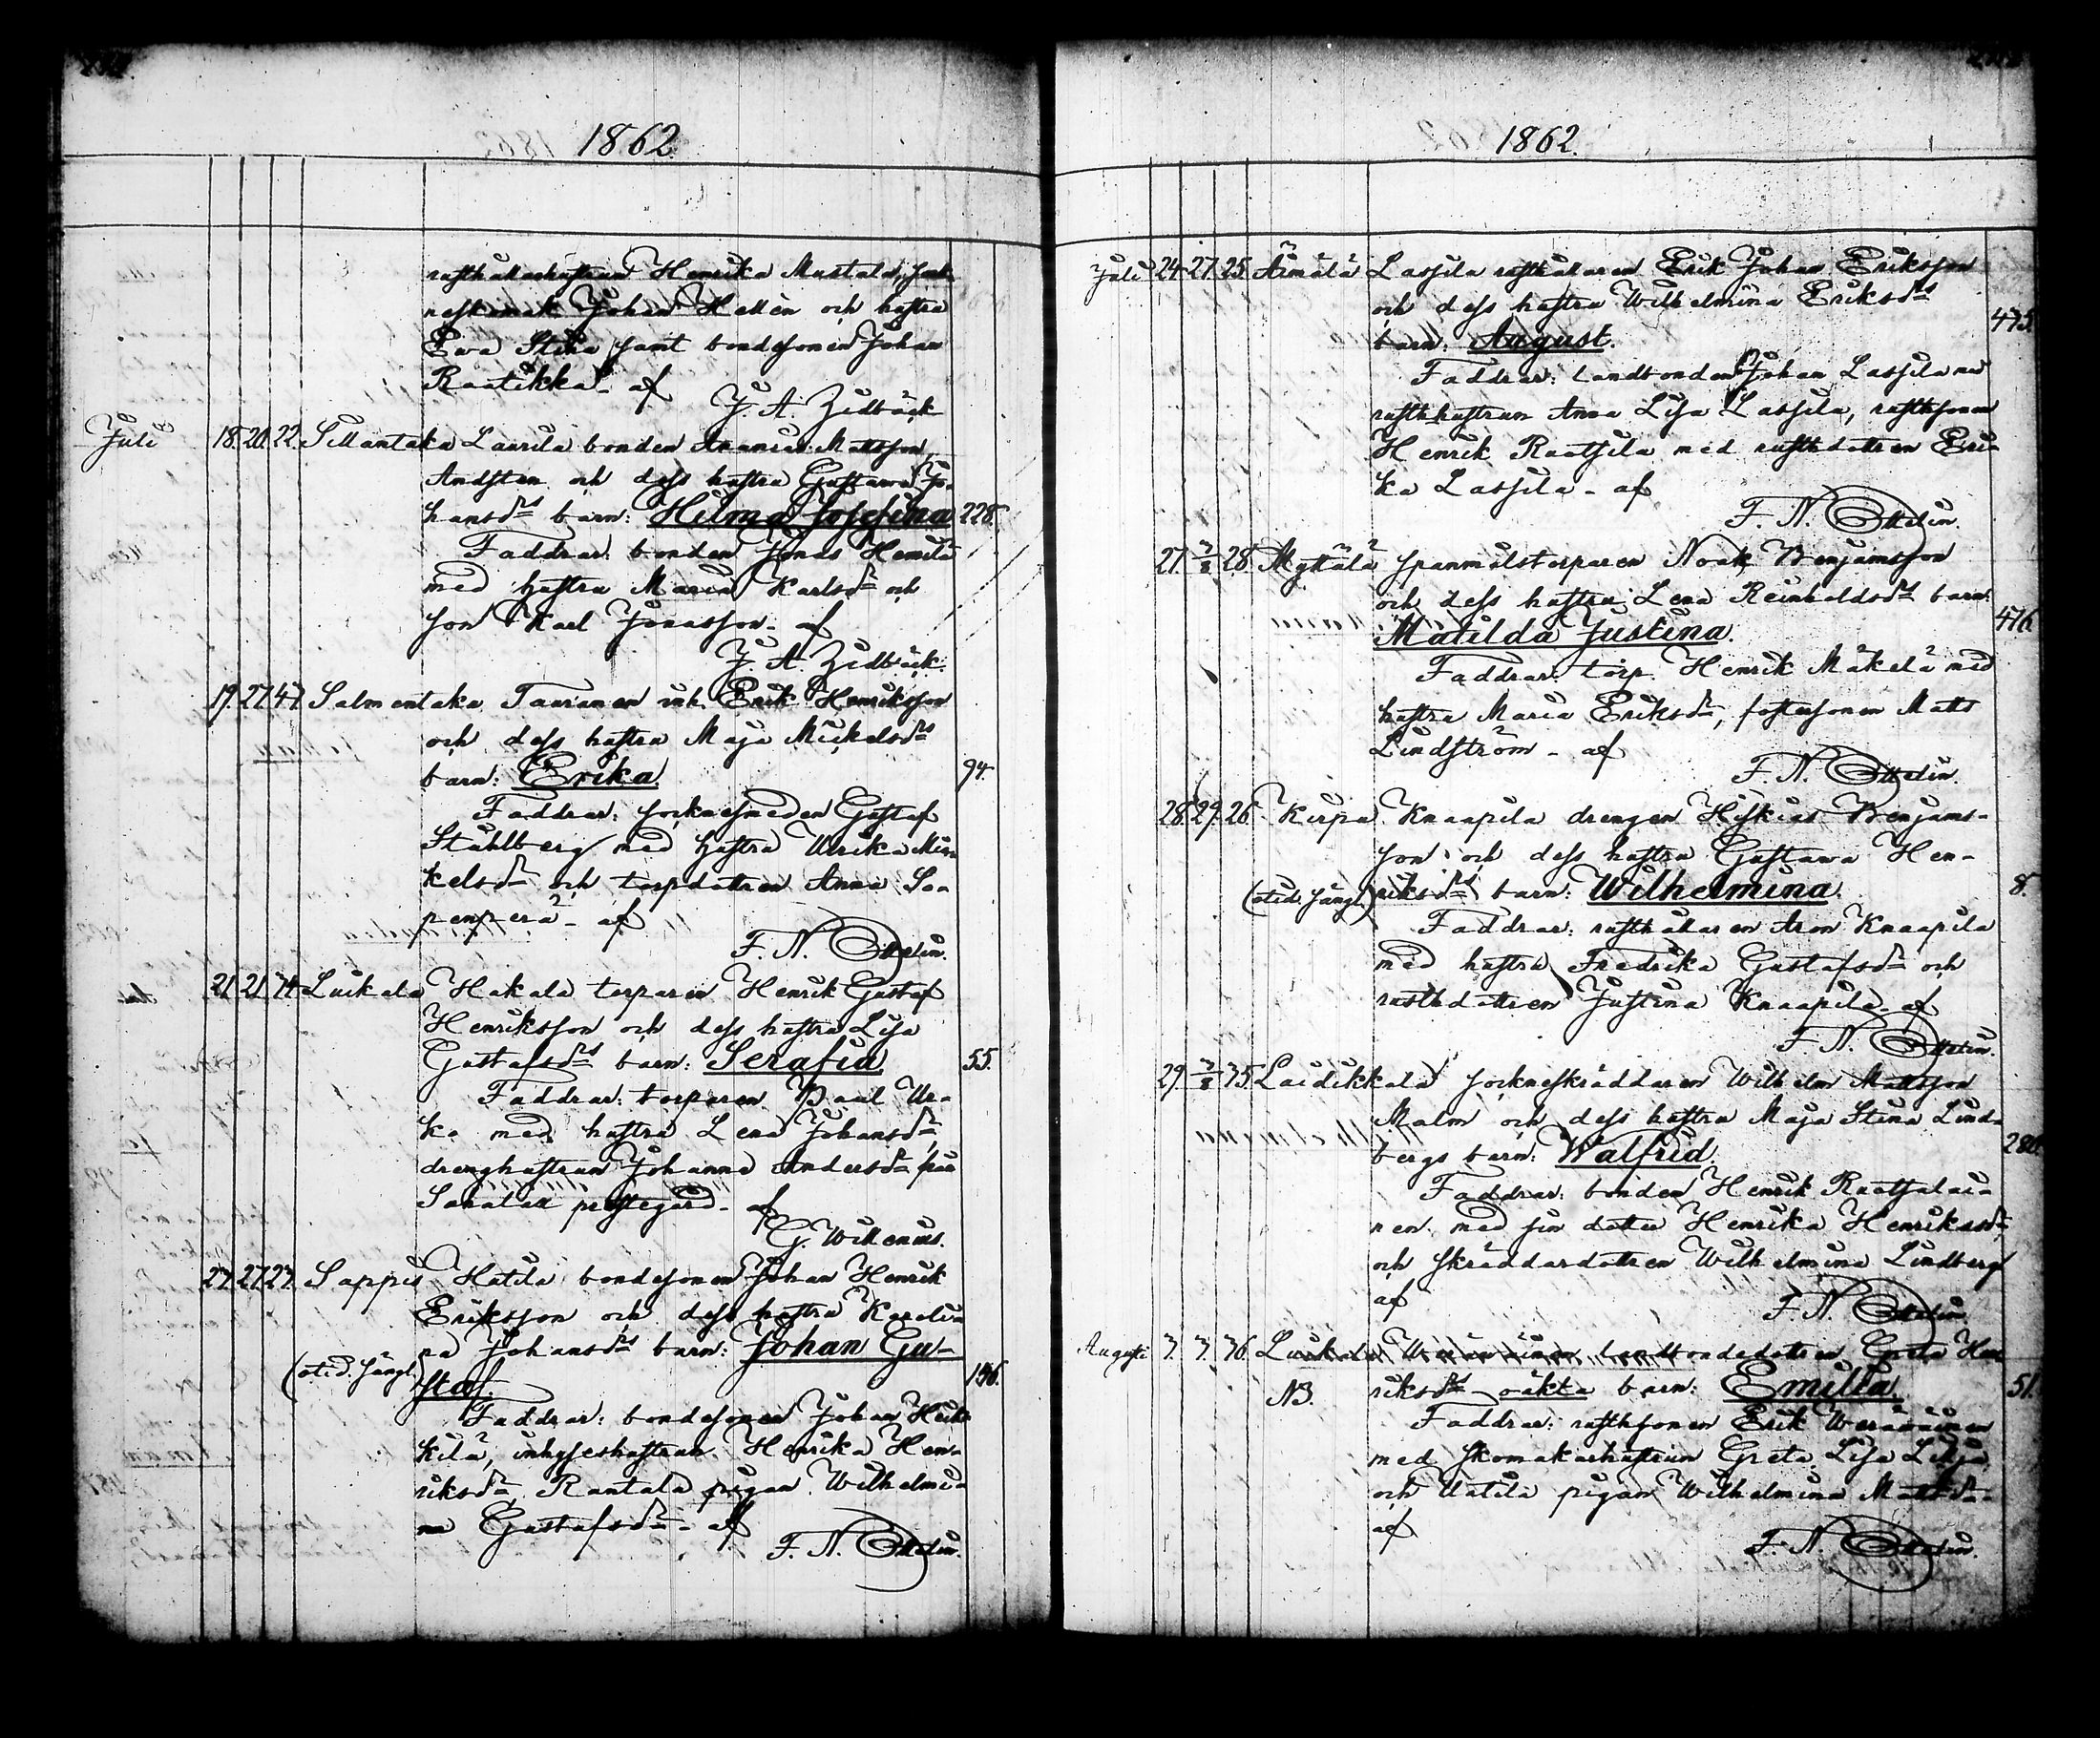 1862.
rusthållarhustrun Henrika Mustala, sock
neskomak. Johan Hellén och hustru
Ewa Stina samt bondesonen Johan
Raatikka - af
J. A. Zidbäck
Juli 18. 20. 22. Sillantaka Laurila bonden Ananias Mattsson
Andsten och dess hustru Gustawa Jo-
hansdrs barn: Hilma Josefina 228.
Faddrar: bonden Jonas Hemilä
med hustru Maria Karlsdr och
son Karl Jonasson - af
J. A. Zidbäck.
19. 27. 47. Salmentaka Tauranen inh. Erik Henriksson
och dess hustru Maja Mickelsdrs
barn: Erika. 94.
Faddrar: socknesmeden Gustaf
Stählberg med hustru Ulrika Mic-
kelsdr och torpdottren Anna So-
penperä - af
F. N. Ottelin.
21. 21. 74. Luikala Hakala torparen Henrik Gustaf
Henriksson och dess hustru Lisa
Gustafsdrs barn: Serafia. 55.
Faddrar: torparen Paul Ur-
ko med hustru Lena Johansdr,
dränghustrun Johanna Andersdr från
Sahalax prestegård - af
G. Willenius.
27. 27. 27. Sappi Hatila bondesonen Johan Henrik
Eriksson och dess hustru Karoli-
na Johansdrs barn: Johan Gu-
(otid. fängl.) staf. 146.
Faddrar: bondesonen Johan Heik-
kilä, inhyseshustrun Henrika Hen-
riksdr Rantala pigan Wilhelmi-
na Gustafsdr - af
F. N. Ottelin.
1862.
Juli 24. 27. 25. Äimälä Lassila rusthållaren Erik Johan Eriksson
och dess hustru Wilhelmina Eriksdrs
barn: August. 475.
Faddrar: landbonden Johan Lassila med
rusthhustrun Anna Lisa Lassila, rusthsonen
Henrik Raatsila med rusthdottren Eri-
ka Lassila - af
F. N. Ottelin.
27. 3/8 28. Myttälä spanmålstorparen Noak Benjamsson
och dess hustru Lena Reinholdsdrs barn:
Matilda Justina. 476.
Faddrar: torp. Henrik Mäkelä med
hustru Maria Eriksdr, fostersonen Matts
Lindström - af
F. N. Ottelin.
28. 29. 26. Kirpa Knaapila drengen Hiskias Benjams-
son och dess hustru Gustawa Hen-
(otid. fängl.) riksdrs barn: Wilhelmina. 8.
Faddrar: rusthållaren Aron Knaapila
med hustru Fredrika Gustafsdr och
rusthdottren Justina Knaapila - af
F. N. Ottelin.
29. 3/8 75. Laidikkala sockneskräddaren Wilhelm Mattsson
Malm och dess hustru Maja Stina Lind-
bergs barn: Walfrid. 280.
Faddrar: bonden Henrik Raatsalai-
nen med sin dotter Henrika Henriksdr,
och skräddardottren Wilhelmina Lindberg
af
F. N. Ottelin.
Augusti 3. 3. 76. Luikala Weräväinen landbondedottren Greta Hen
NB. riksdrs oäkta barn: Emilia. 51.
Faddrar: rusthsonen Erik Weräväinen
med skomakarhustrun Greta Lisa Lilja
och Uotila pigan Wilhelmina Mattsdr -
af
F. N. Ottelin.